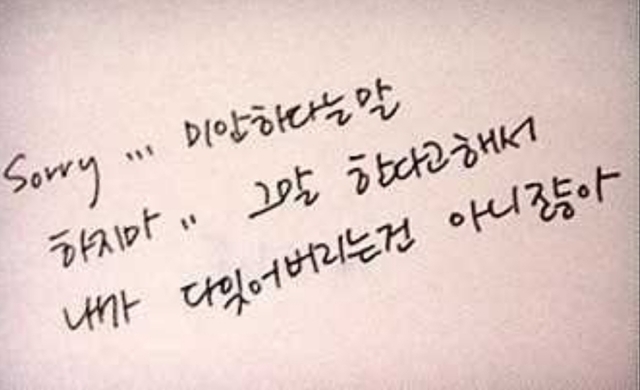 Sorry ... 미안하다는말
하지마 .. 그말 한다고해서
내가 다잊어버리는건 아니잖아